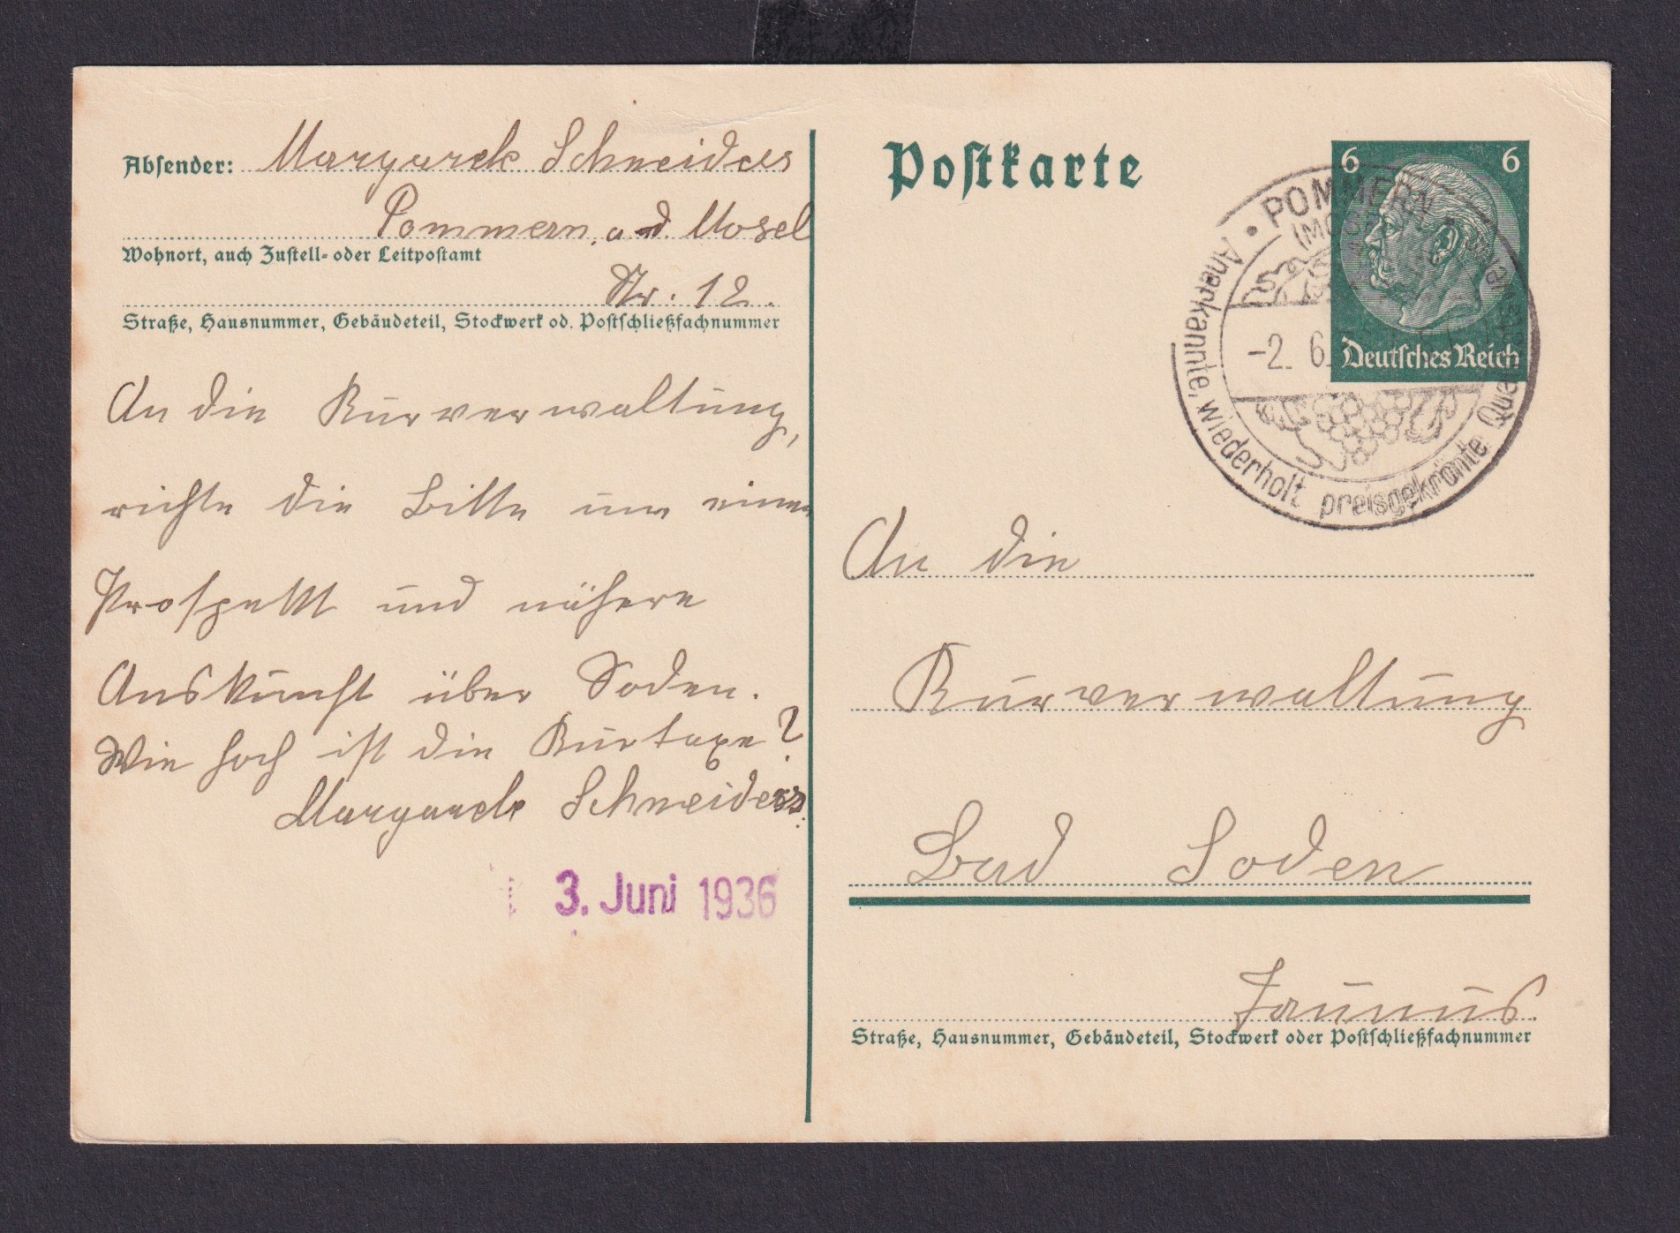 Absender: Margarete Schneiders
Pommern, a. d. Mosel
Wohnort, auch Zustell- oder Leitpostamt
Nr. 12.
Straße, Hausnummer, Gebäudeteil, Stockwerk od. Postschließfachnummer
An die Kurverwaltung,
richte die Bitte um einen
Prospekkt und nähere
Auskunft über Soden.
Wie hoch ist die Kurtaxe?
Margarete Schneiders.
3. Juni 1936
Postkarte
6 6
Deutsches Reich
POMMERN
(MOSEL)
-2. 6.
Anerkannte, wiederholt preisgekrönte
An die
Kurverwaltung
Bad Soden
Taunus.
Straße, Hausnummer, Gebäudeteil, Stockwerk oder Postschließfachnummer